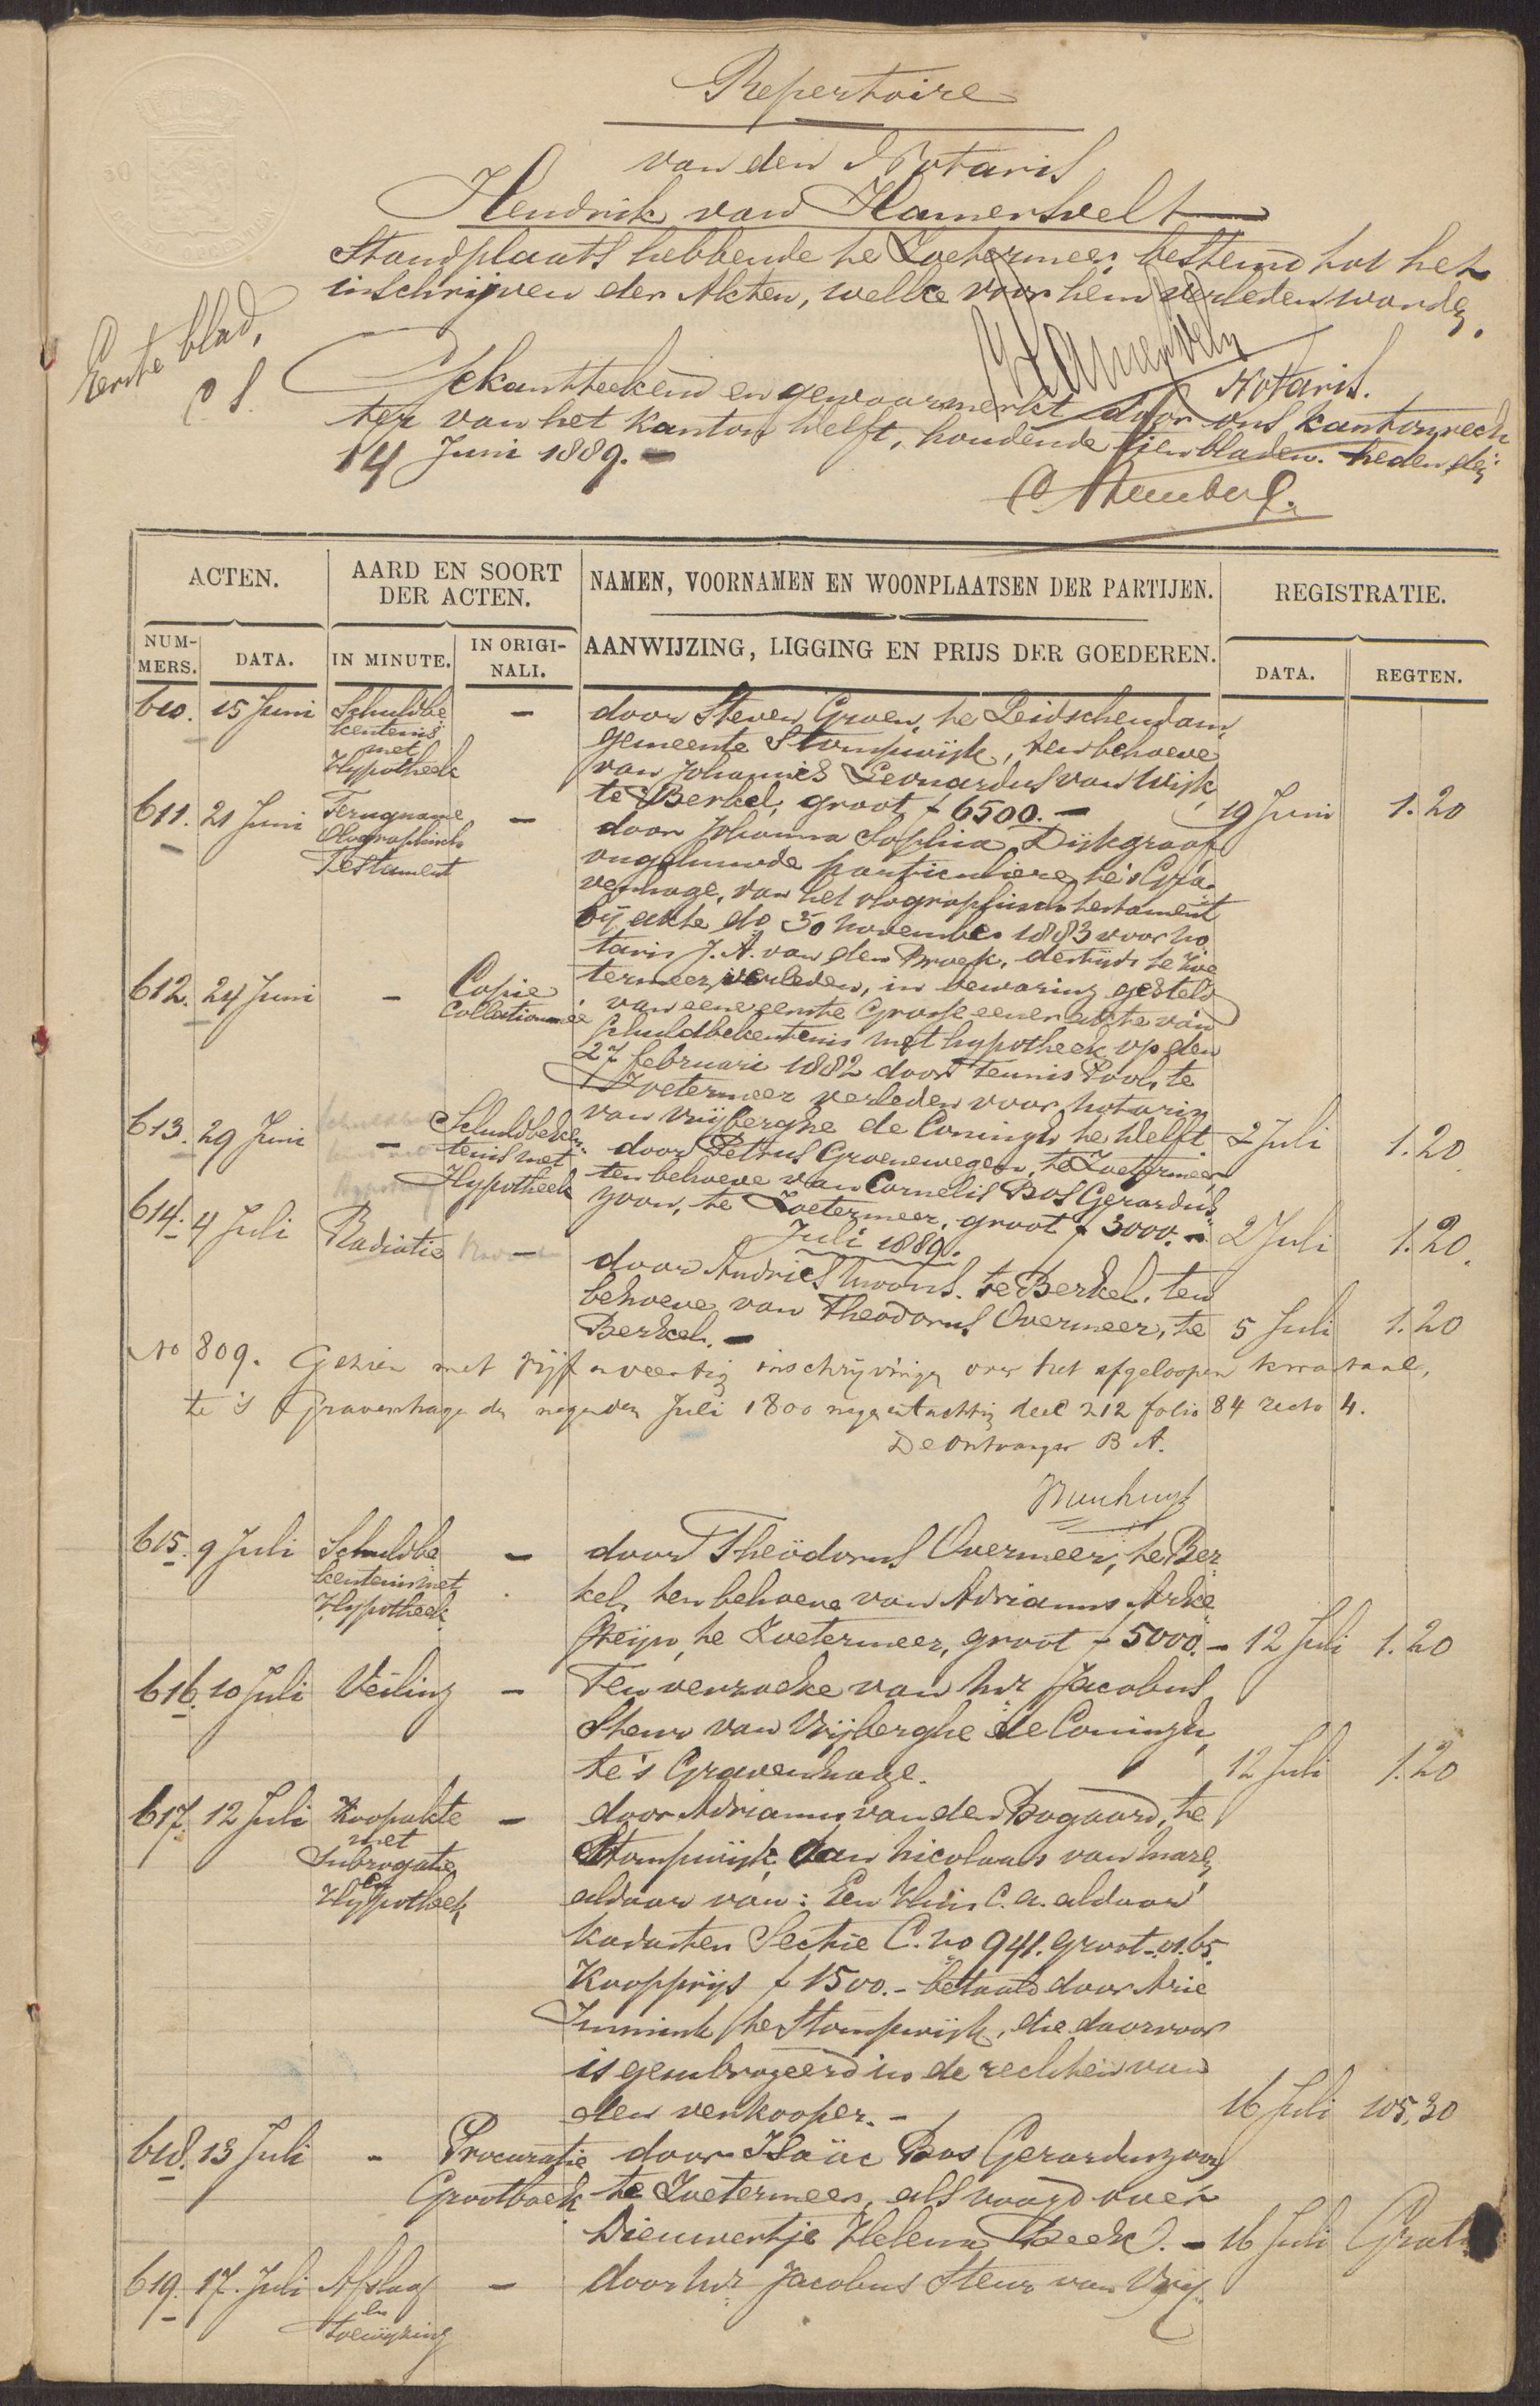 Repertoire
van den Notaris
Hendrik van Hamersvelt
Standplaats hebbende te Zoetermeer bestemd tot het
inschrijven der Akten, welke voor hem verleden worden.
Hamersvelt
Notaris.
Eerste blad,
Gekanttekend en gewaarmerkt door ons kantonrech
ter van het kanton Delft, houdende tien bladen. heden den
14 Juni 1889. -
ACTEN. AARD EN SOORT DER ACTEN. NAMEN, VOORNAMEN EN WOONPLAATSEN DER PARTIJEN. REGISTRATIE.
NUM-MERS. DATA. IN MINUTE. IN ORIGI-NALI. AANWIJZING, LIGGING EN PRIJS DER GOEDEREN. DATA. REGTEN.
610. 15 Juni Schuldbe - door Steven Groen, te Leidschendam,
kentenis gemeente Stompwijk, ten behoeve
met van Johannes Leonardus van Wijk,
Hypotheek te Berkel, groot f 6500. - 19 Juni 1.20
611. 21 Juni Terugname - door Johanna Sophia Dijkgraaf
Olographisch ongehuwde particuliere, te 's Gra-
Testament venhage, van het olographisch testament
bij akte do 30 november 1883 voor no
taris J. A. van den Broek, destijds te Zoe
termeer, verleden, in bewaring gesteld
612. 24 Juni - Copie van eene eerste Grosse eener akte van
Collationnée Schuldbekentenis met hypotheek op den
27 februari 1882 door Teunis Pool, te
Zoetermeer verleden voor notaris
van Vrijberghe de Coningh te Delft 2 Juli 1.20
613. 29 Juni - Schuldbeken- door Petrus Groenewegen, te Zoetermeer,
tenis met ten behoeve van Cornelis Bos Gerardus
Hypotheek zoon, te Zoetermeer, groot f 3000. - 2 Juli 1.20.
Juli 1889.
614. 4 Juli Radiatie - door Andries te Berkel, ten
behoeve van Theodorus Overmeer, te
Berkel. - 5 Juli 1.20
No 809. Gezien met vijf en veertig inschrijvingen over het afgeloopen kwartaal,
te 's Gravenhage den negenden Juli 1800 negen en tachtig deel 212 folio 84 recto 4.
De Ontvanger B A.
615. 9 Juli Schuldbe - door Theodorus Overmeer, te Ber
kentenis met kel, ten behoeve van Adrianus Arke
Hypotheek steijn, te Zoetermeer, groot f 5000. - 12 Juli 1.20
616. 10 Juli Veiling - Ten verzoeke van Mr Jacobus
Steur van Vrijberghe de Coningh,
te 's Gravenhage. 12 Juli 1.20
617. 12 Juli Koopakte - door Adrianus van den Bogaard, te
met Stompwijk, aan Nicolaas van
Subrogatie aldaar van: Een Huis c.a. aldaar
en Hypotheek kadaster Sectie C. no 941. groot -.01.65.
Koopprijs f 1500. - betaald door Arie
Immink te Stompwijk, die daarvoor
is gesubrogeerd in de rechten van
den verkooper. - 16 Juli 105.30
618. 13 Juli - Procuratie door Isaäc Bos Gerarduszoon
Grootboek te Zoetermeer, als voogd over
Dieuwertje Helena Beek. - 16 Juli Gratis
619. 17. Juli Afslag - door Mr Jacobus Steur van Vrij-
en
toewijzing